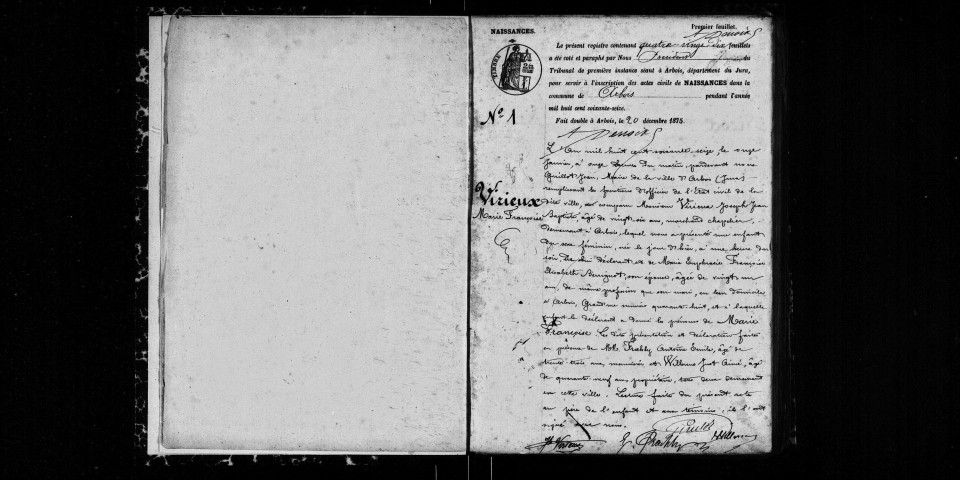 Premier feuillet.
NAISSANCES.
Le présent registre contenant quatre vingt dix feuillets
a été coté et paraphé par Nous Président du
Tribunal de première instance séant à Arbois, département du Jura,
pour servir à l'inscription des actes civils de NAISSANCES dans la
commune de Arbois pendant l'année
mil huit cent soixante-seize.
Fait double à Arbois, le 20 décembre 1875.
N° 1
Virieux
Marie Françoise
L'An mil huit cent soixante seize, le onze
Janvier, à onze heures du matin, pardevant nous
Guillot Jean, Maire de la ville d'Arbois (Jura)
remplissant les fonctions d'officier de l'Etat civil de la
dite ville, est comparu Monsieur Virieux Joseph Jean
Baptiste, âgé de vingt six ans, marchand chapelier,
demeurant à Arbois, lequel nous a présenté un enfant
du sexe féminin, née le jour d'hier, à une heure du
soir de lui déclarant et de Marie Euphrasie Françoise
Elisabeth Benignot, son épouse, âgée de vingt un
ans, de même profession que son mari, en leur domicile
à Arbois, Grand'rue numéro quarante huit, et à laquelle
enfant le déclarant a donné les prénoms de Marie
Françoise. Les dites présentation et déclaration faites
en présence de MM. Antoine Emile, âgé de
trente trois ans, menuisier et Just Aimé, âgé
de quarante neuf ans, propriétaire, tous deux demeurant
en cette ville. Lecture faite du présent acte
au père de l'enfant et aux témoins, ils l'ont
signé avec nous.